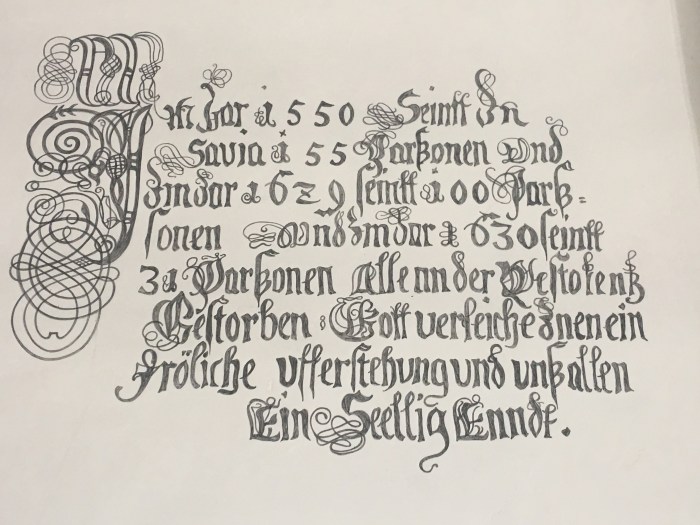 Im Jar 1550 Seintt In
Savia 155 Parßonen Vnd
Im Jar 1629 seintt 100 Parß=
sonen Vnd Im Jar 1630 seintt
31 Parßonen Alle an der Pestolentz
Gestorben : Gott verleiche Inen ein
Fröliche ufferstehung und unß allen
Ein Seellig Enndt.